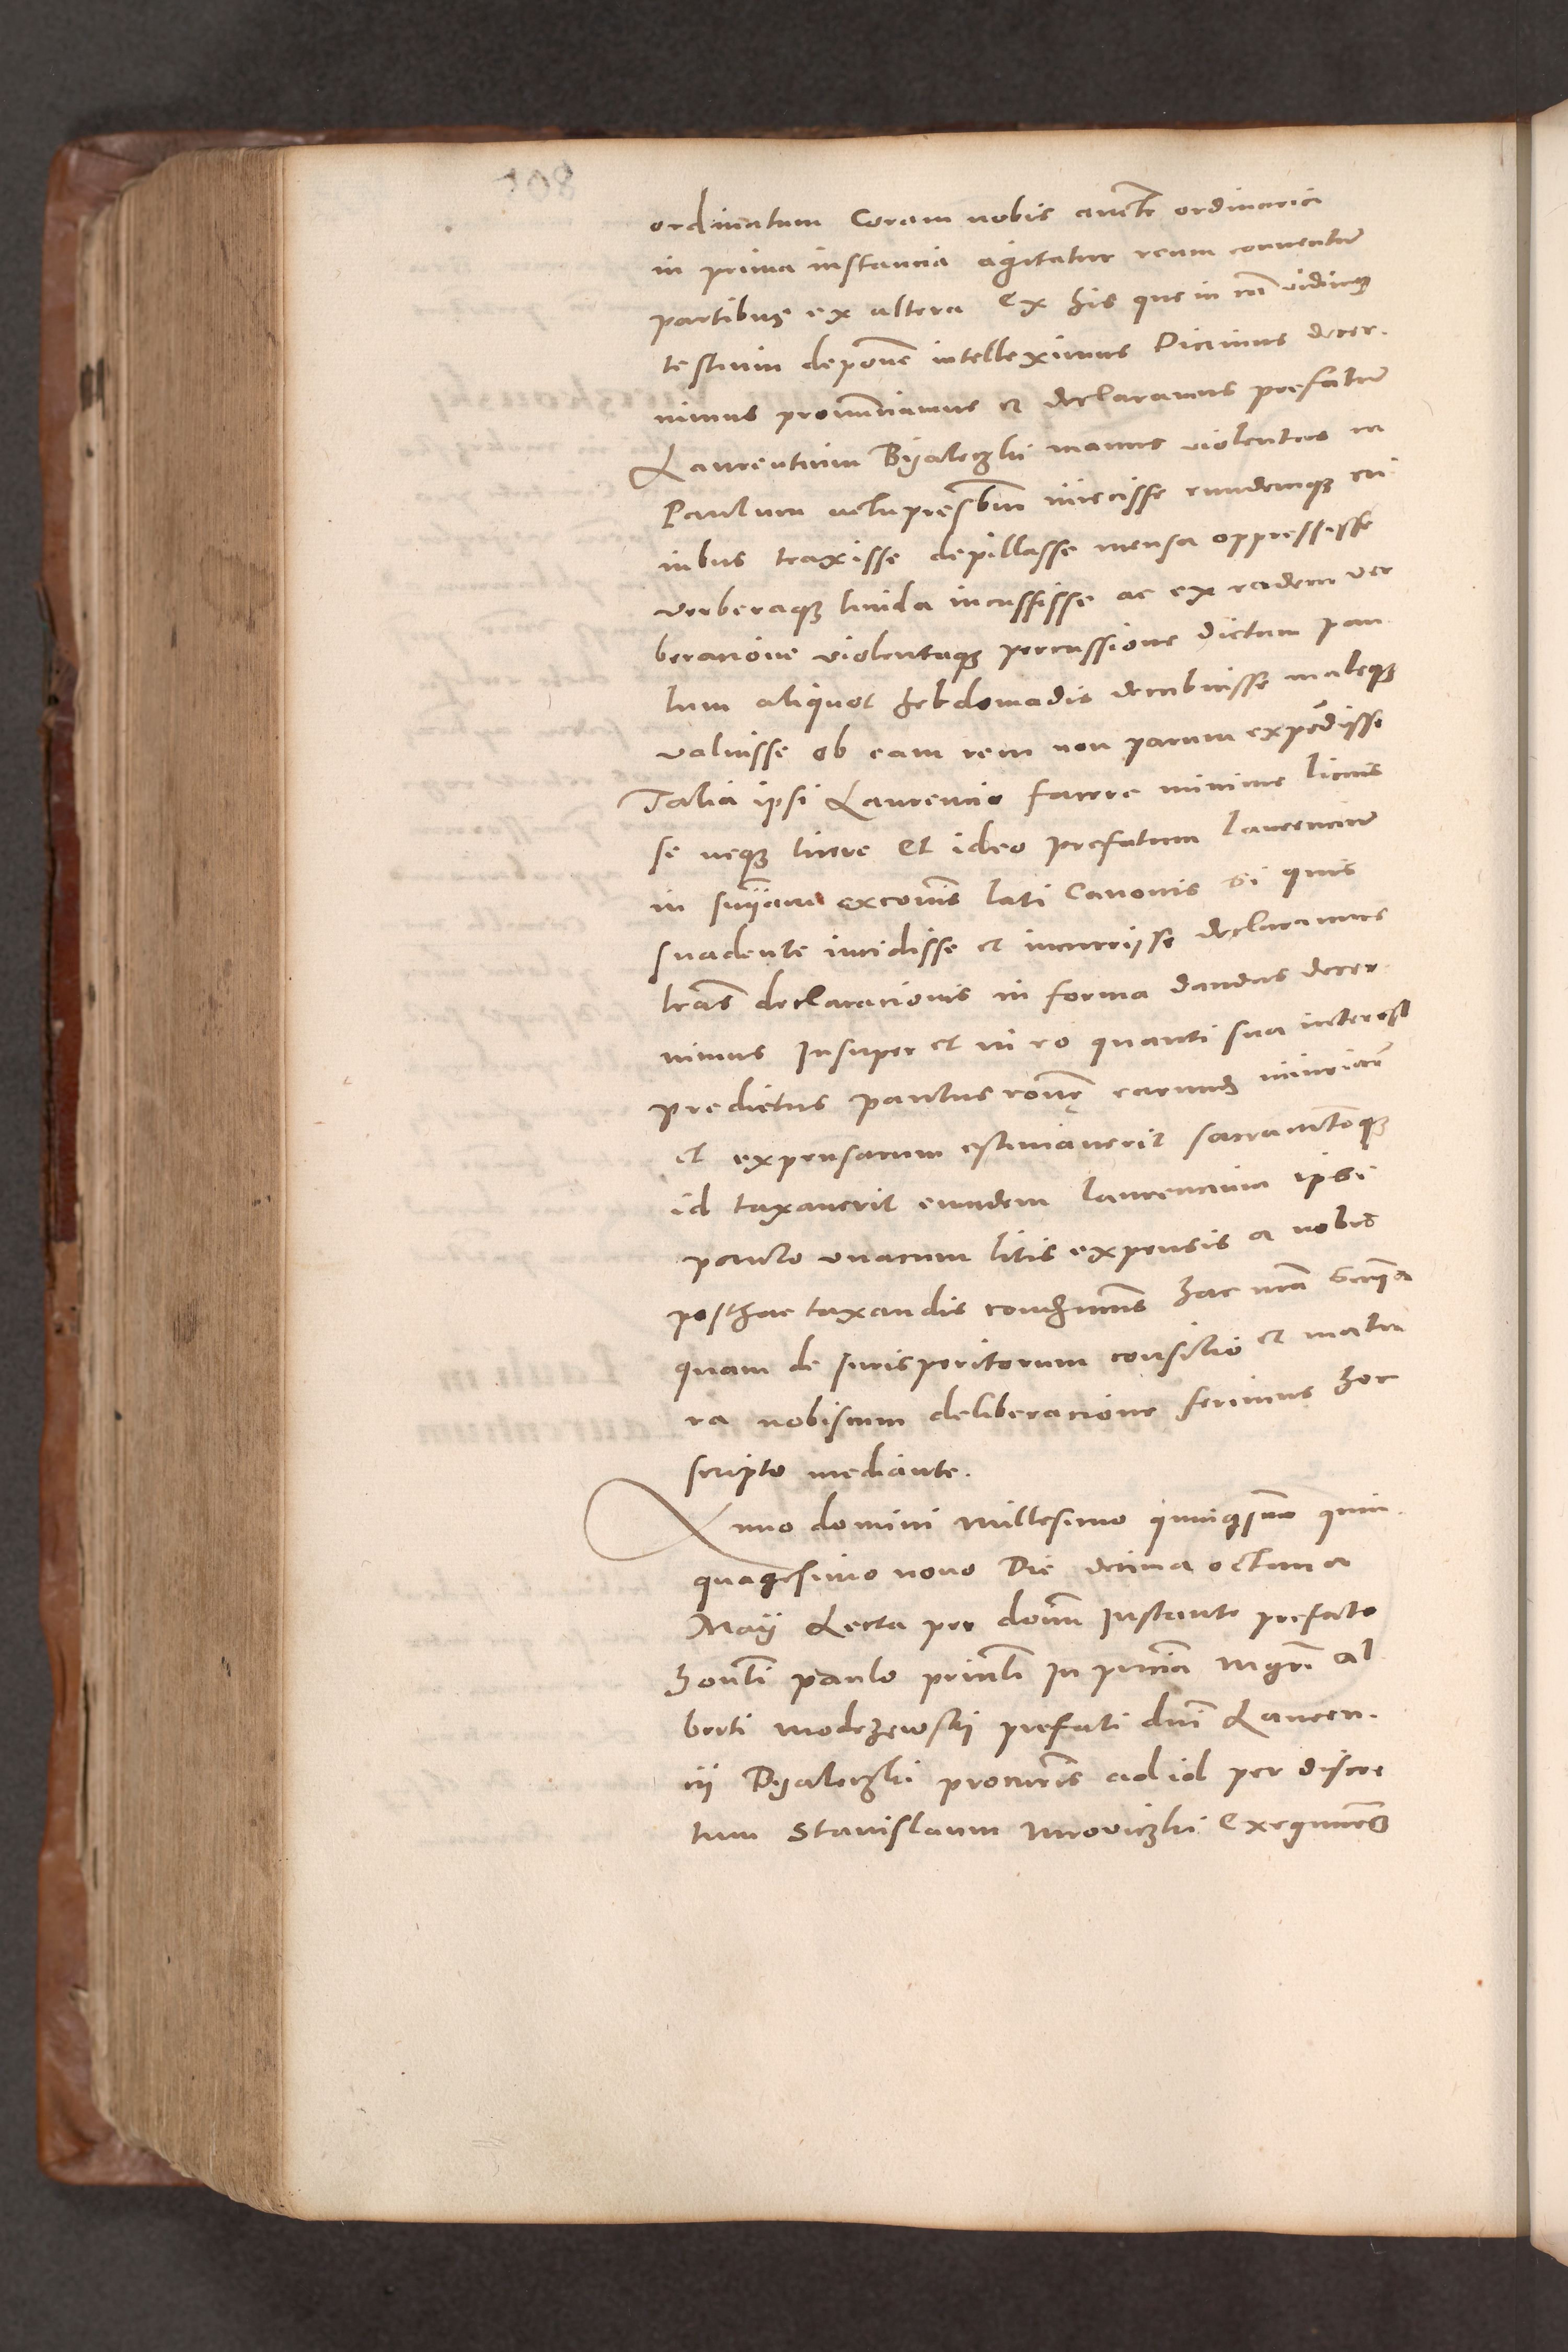 ordinatum Coram nobis auctte ordinaria
in prima instancia agitatur reum conventũ
partibus ex altera Ex his que in cã vidimq
testium depone intelleximus Dicimus decer-
nimus pronunciamus et declaramus prefatũ
Laurentium Byaleczki manus violentas in
Paulum presbm iniecisse eundemqz cri
nibus traxisse depillasse mensa oppressisse
verberaqz livida incussisse ac ex eadem ver
beracione violentaqz percussione dictum pau
lum aliquot hebdomadis decubuisse maleqz
valuisse ob eam rem non parum expēdisse
Talia ipsi Laurencio facere minime licuis
se neqz licere Et ideo prefatum laurenciũ
in snyam excois lati Canonis Si quis
suadente incidisse et incurrisse declaramus
lras declaracionis in forma dandas decer
nimus Insuper et in eo quanti sua interest
predictus paulus rone earund iniuriarũ
et expensarum estimaverit sacramentoqz
id taxaverit eundem laurencium ipsi
paulo unacum litis expensis a nobis
posthac taxandis condnmus hac nra Snya
quam de Jurisperitorum consilio et matu
ra nobiscum deliberacione ferimus hoc
scripto mediante.
Anno domini Millesimo quingsmo quin-
quagesimo nono Die decima octava
Maij Lecta per dom Instante prefato
honli paulo princli In pncia mgri Al
berti modrzewski prefati dni Lauren-
cij Byaleczki procuris ad id per discre
tum Stanislaum Exequuens
805